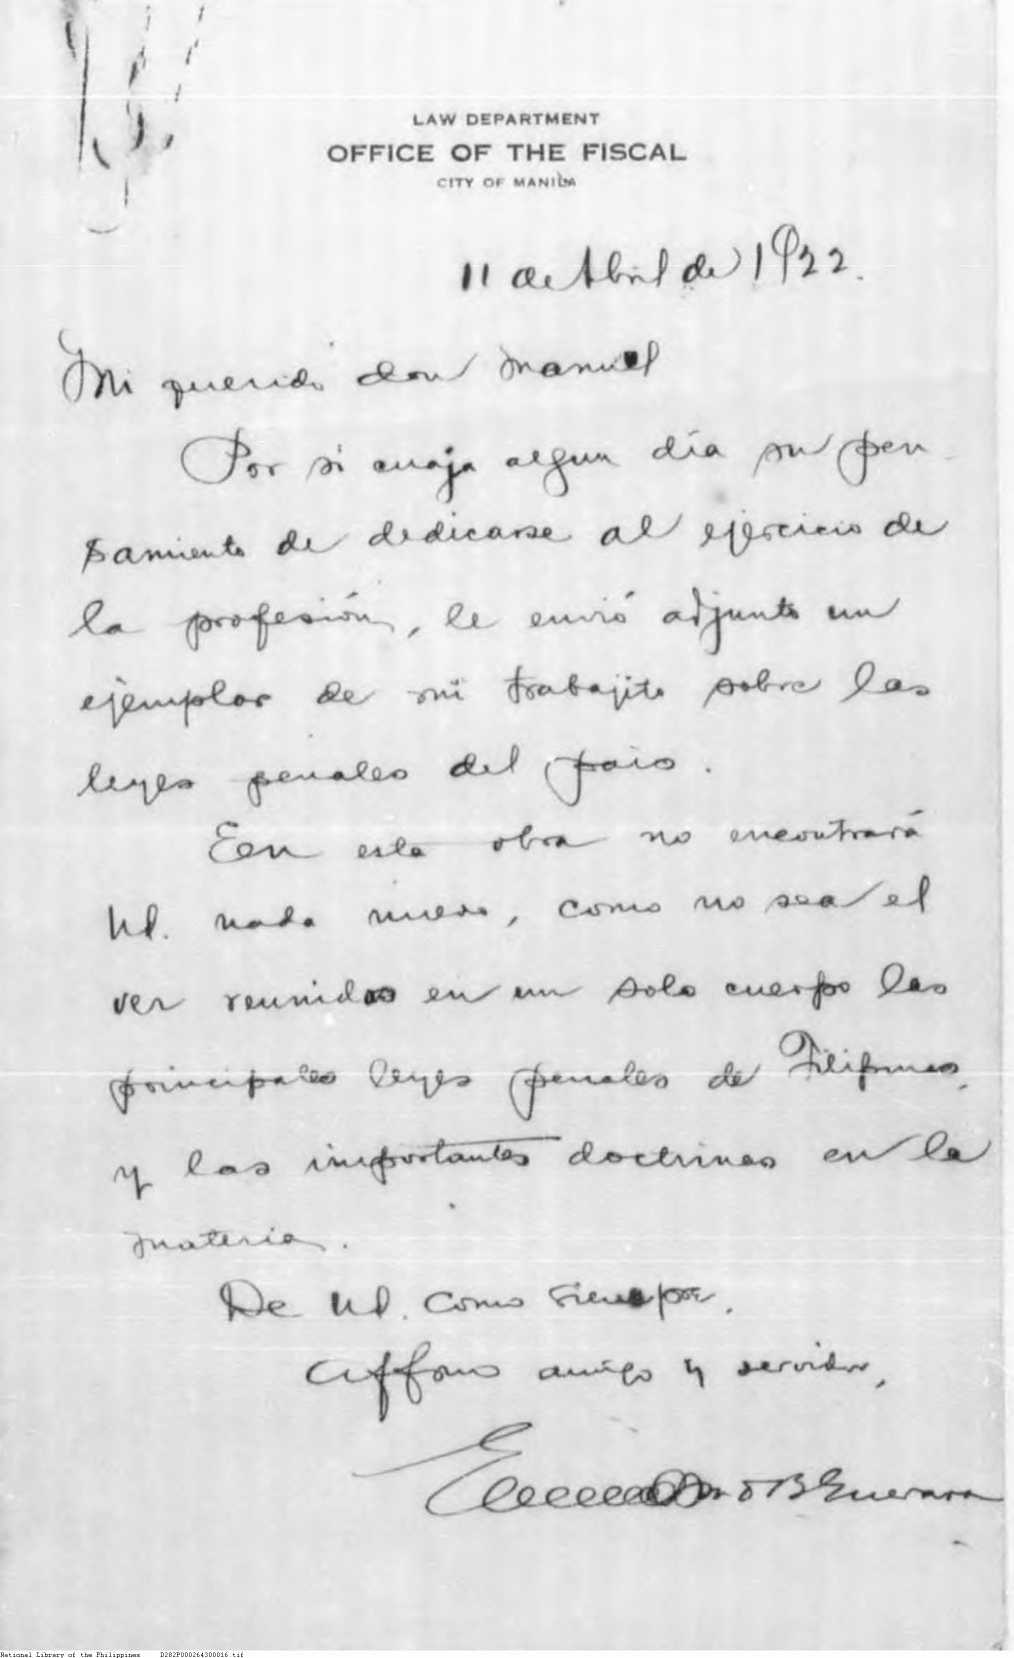 LAW DEPARTMENT
OFFICE OF THE FISCAL
CITY OF MANILA
11 de Abril de 1922.
Mi querido don Manuel
Por si cuaja algun día su pen-
samiento de dedicarse al ejercicio de
la profesión, le envió adjunto un
ejemplar de mi trabajito sobre las
leyes penales del pais.
En esta obra no encontrará
Ud. nada nuevo, como no sea el
ver reunidas en un solo cuerpo las
principales leyes penales de Filipinas,
y las importantes doctrinas en la
materia.
De Ud. como siempre,
affmo amigo y servidor,
B Guevara
National Library of the Philippines D282P000264300016.tif